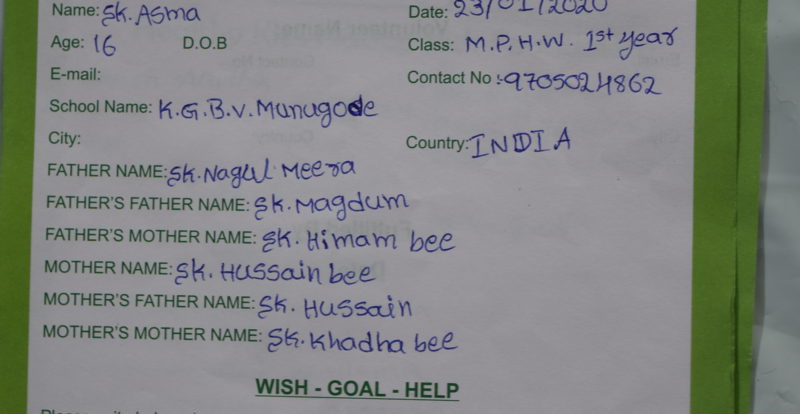 Name: SK. Asma Date: 23/01/2020
Age: 16 D.O.B Class: M.P.H.W. 1st year
E-mail: Contact No :-9705024862
School Name: K.G.B.V. Munugode
City: Country: INDIA
FATHER NAME: SK. Nagul Meera
FATHER'S FATHER NAME: SK. Magdum
FATHER'S MOTHER NAME: SK. Himam bee
MOTHER NAME: SK. Hussain bee
MOTHER'S FATHER NAME: SK. Hussain
MOTHER'S MOTHER NAME: SK. Khadha bee
WISH - GOAL - HELP